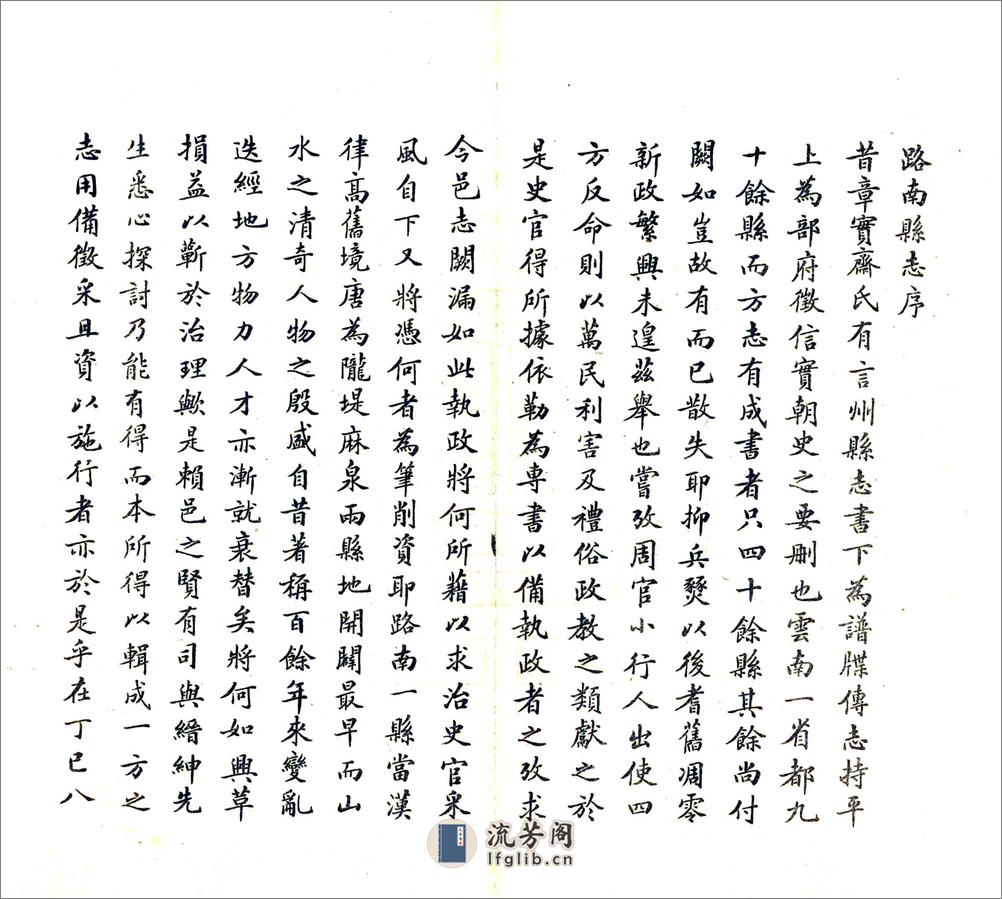 路南縣志序
昔章實齋氏有言州縣志書下為譜牒傳志持平
上為部府徵信實朝史之要刪也雲南一省都九
十餘縣而方志有成書者只四十餘縣其餘尚付
闕如豈故有而已散失耶抑兵燹以後耆舊凋零
新政繁興未遑茲舉也嘗攷周官小行人出使四
方反命則以萬民利害及禮俗政教之類獻之於
是史官得所據依勒為專書以備執政者之攷求
今邑志闕漏如此執政將何所藉以求治史官采
風自下又將憑何者為筆削資耶路南一縣當漢
律高舊境唐為隴堤麻泉兩縣地開闢最早而山
水之清奇人物之殷盛自昔著稱百餘年來變亂
迭經地方物力人才亦漸就衰替矣將何如興革
損益以蘄於治理歟是賴邑之賢有司與縉紳先
生悉心探討乃能有得而本所得以輯成一方之
志用備徵采且資以施行者亦於是乎在丁巳八
流芳阁
lfglib.cn